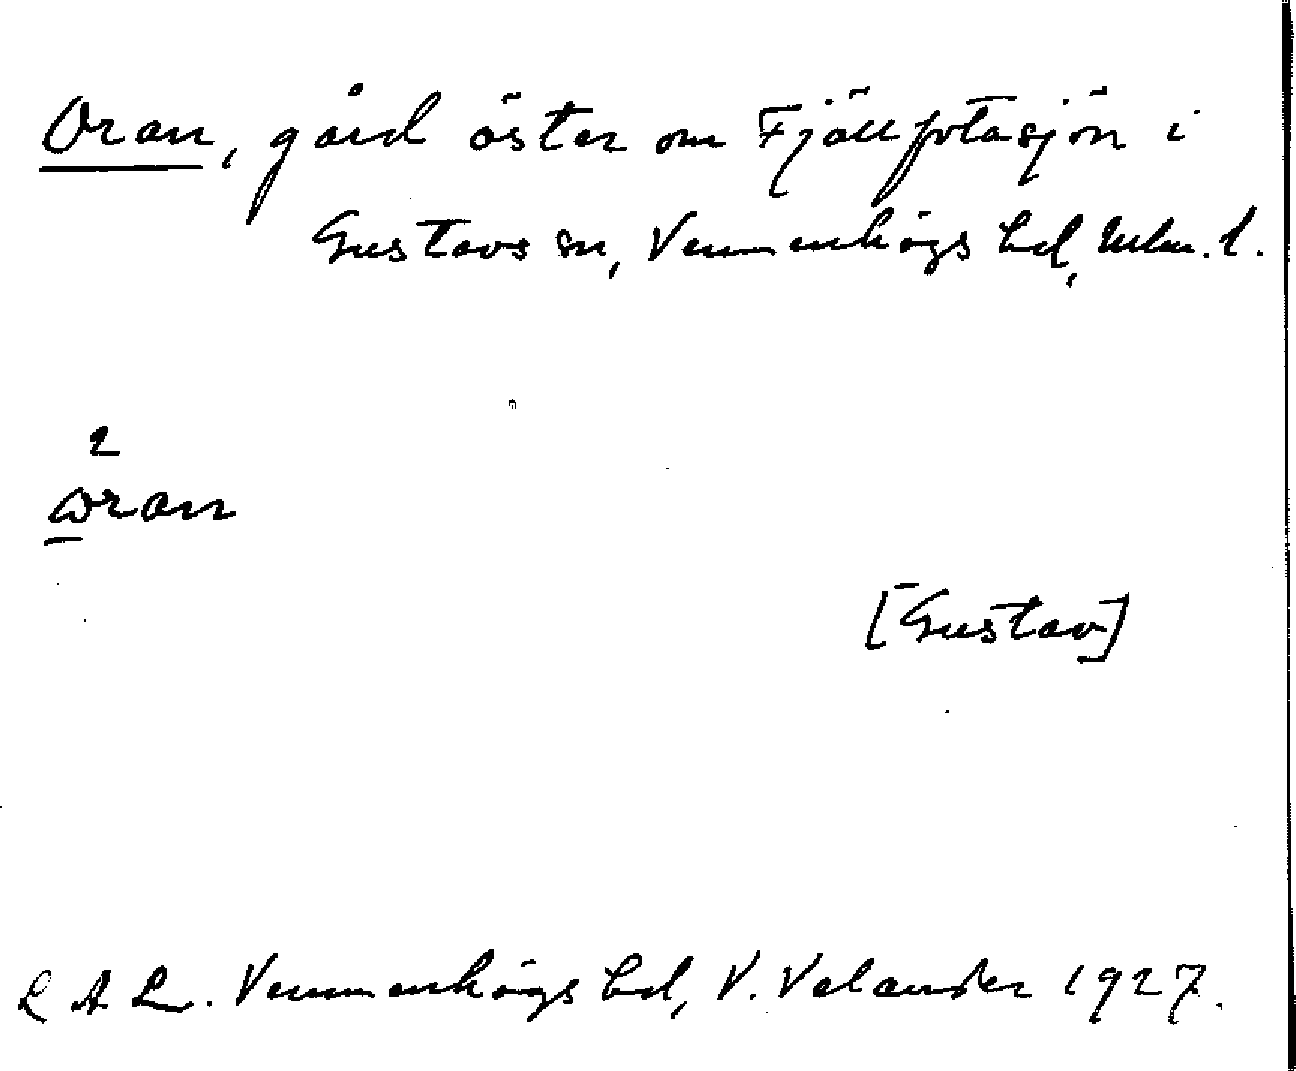 Oran, gård öster om Fjällfotasjön i
Gustavs sn, Vemmenhögs hd, Mlm. l.
2
oran
[Gustav]
L A L. Vemmenhögs hd, V. Velander 1927.